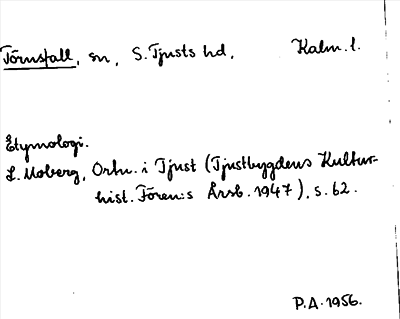 Törnsfall, sn, S. Tjusts hd, Kalm. l.
Etymologi.
L. Moberg, Ortn. i Tjust (Tjustbygdens Kultur-
hist. Fören:s Årsb. 1947), s. 62.
P.A. 1956.